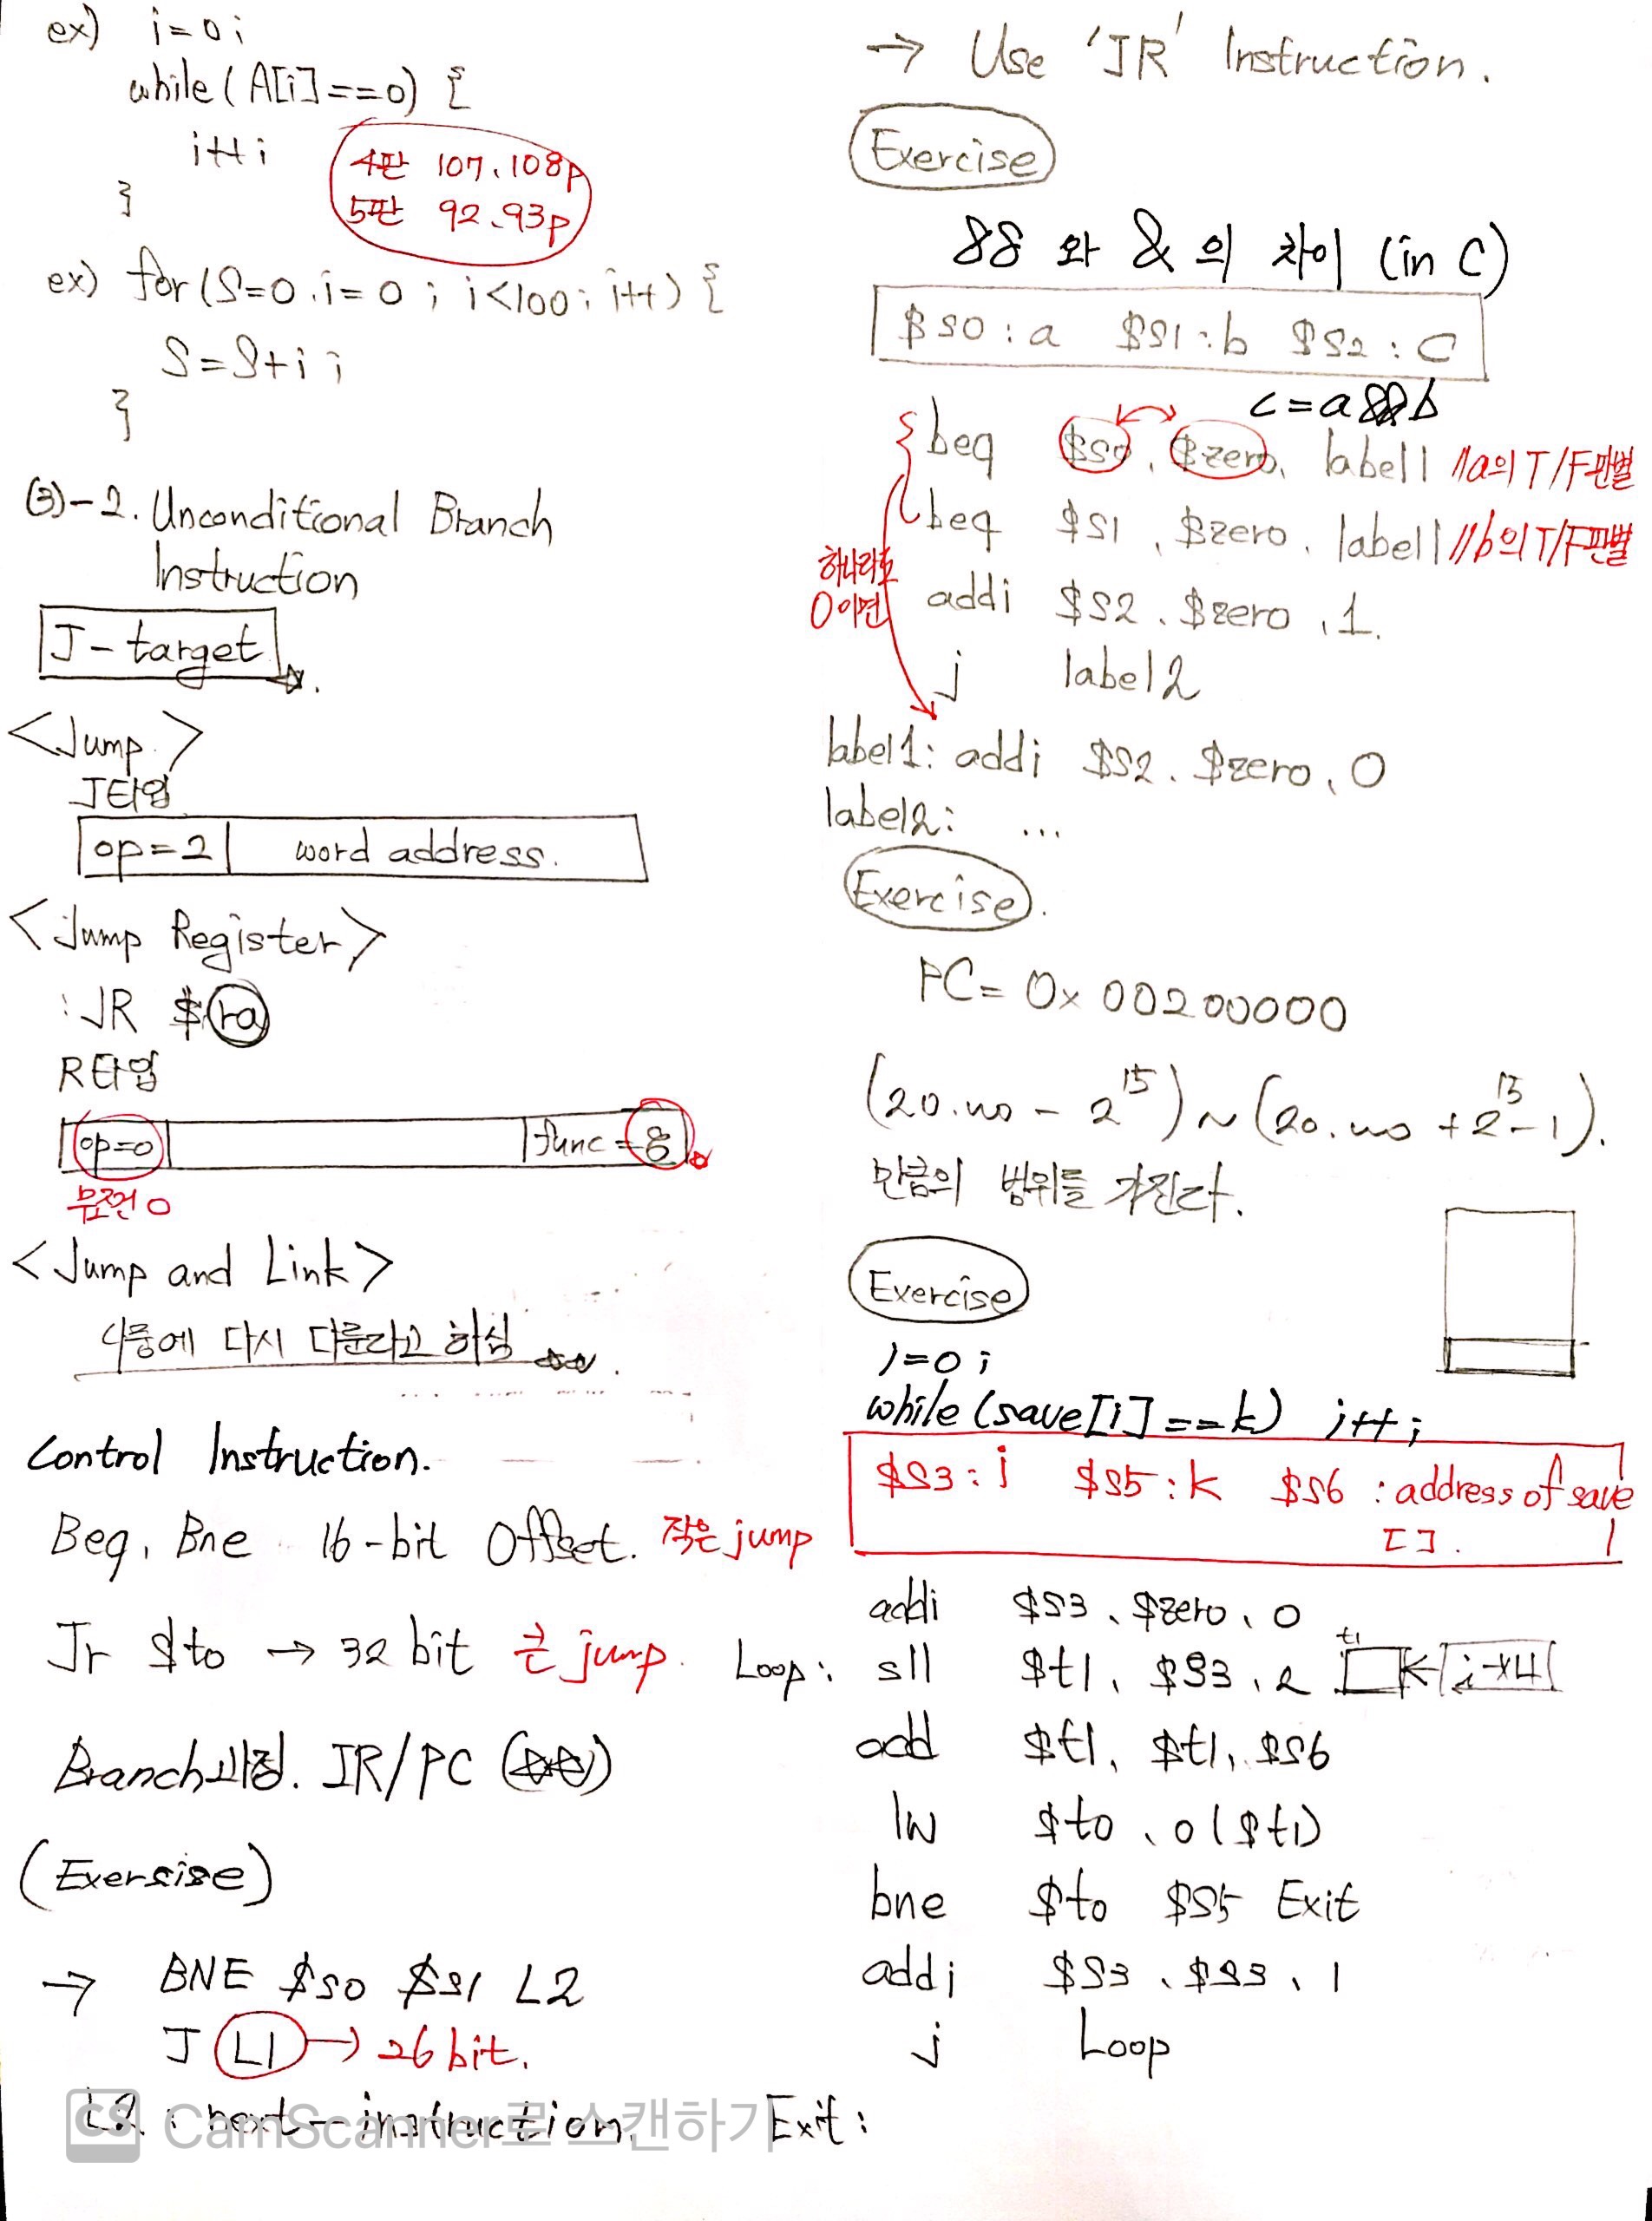 ex) i=0;
while(A[i]==0) {
i++;
4판 107.108p
5판 92.93p
}
ex) for(S=0,i=0; i<100; i++) {
S=S+i;
}
(3)-2. Unconditional Branch
Instruction
J-target
<Jump>
J타입
op=2 word address.
<Jump Register>
: JR $ra
R타입
op=0 func=8
무조건 0
<Jump and Link>
나중에 다시 다룬다고 하심
Control Instruction.
Beq, Bne 16-bit Offset. 작은 jump
Jr $t0 → 32 bit 큰 jump.
Branch과정. IR/PC
(Exersise)
→ BNE $s0 $s1 L2
J L1 → 26 bit.
L2: next-instruction.
CS CamScanner로 스캔하기
→ Use 'JR' Instruction.
Exercise
&& 와 & 의 차이 (in C)
$s0:a $s1:b $s2:c
c=a&&b
beq $s0, $zero, label1 //a의 T/F판별
beq $s1, $zero, label1 //b의 T/F판별
하나라도
0이면
addi $s2, $zero, 1.
j label2
label1: addi $s2, $zero, 0
label2: ...
Exercise.
PC= 0x 00200000
만큼의 범위를 가진다.
Exercise
i=0;
while(save[i]==k) i++;
$s3:i $s5:k $s6:address of save
[].
addi $s3, $zero, 0
Loop: sll $t1, $s3, 2 t1 ← i×4
add $t1, $t1, $s6
lw $t0, 0($t1)
bne $t0 $s5 Exit
addi $s3, $s3, 1
j Loop
Exit: